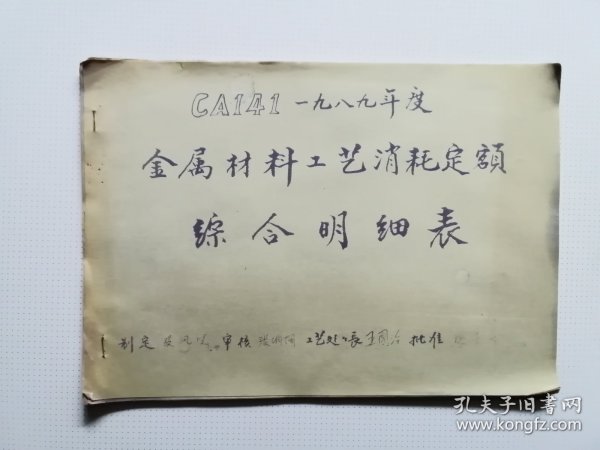 CA141 一九八九年度
金属材料工艺消耗定額
综合明细表
制定 审核 工艺处长 王 批准
孔夫子旧书网
www.kongfz.com